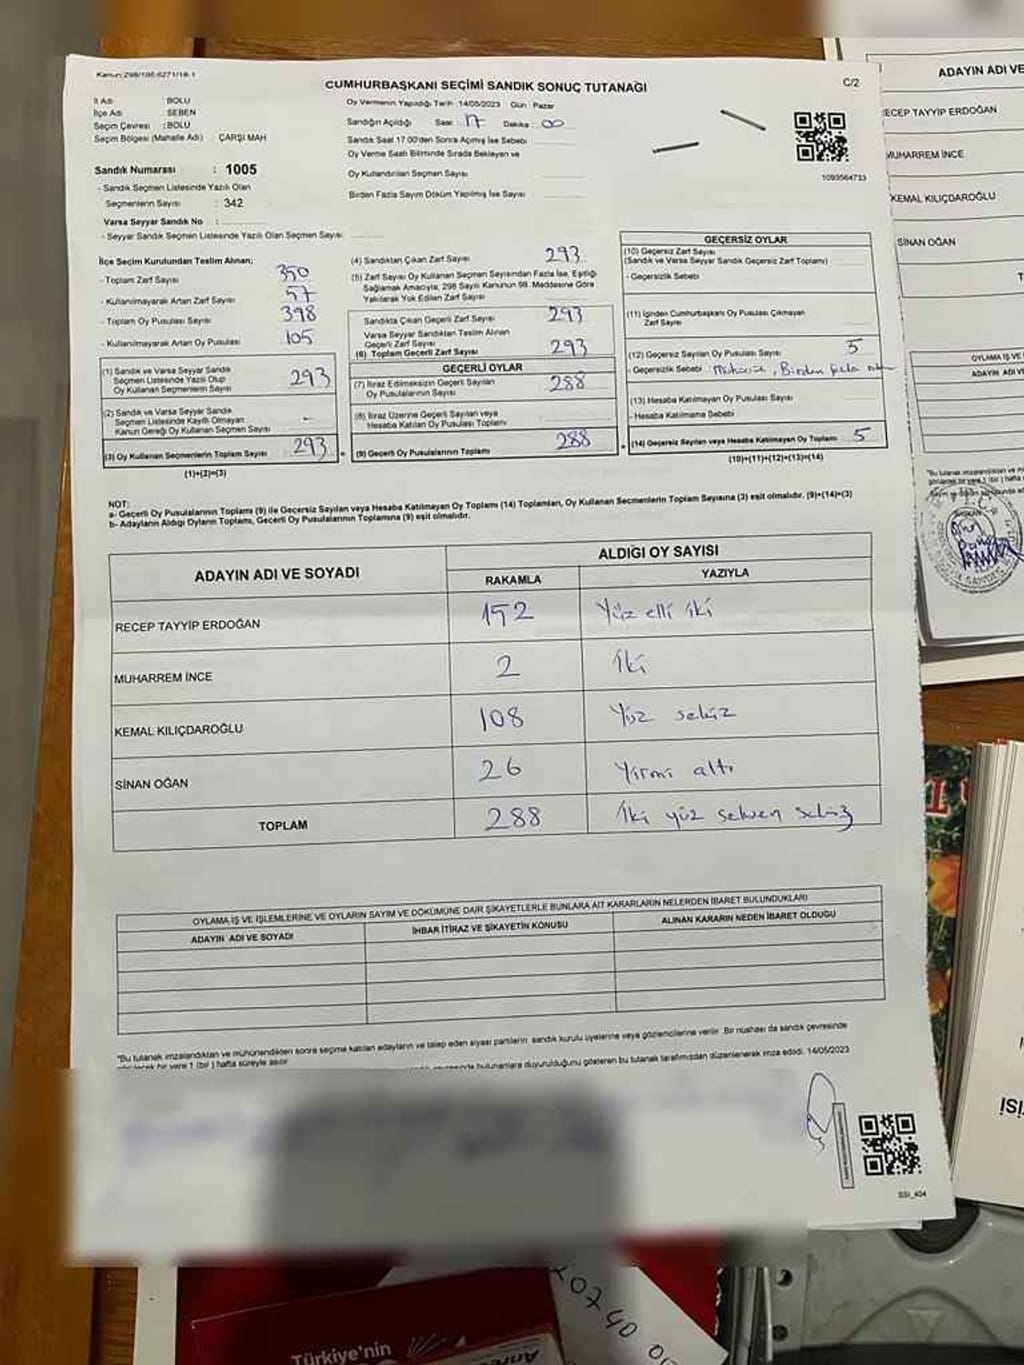 Kanun: 298/105 6271/18-1
CUMHURBAŞKANI SEÇİMİ SANDIK SONUÇ TUTANAĞI
C/2
İl Adı : BOLU
İlçe Adı : SEBEN
Seçim Çevresi : BOLU
Seçim Bölgesi (Mahalle Adı) : ÇARŞI MAH
Sandık Numarası : 1005
- Sandık Seçmen Listesinde Yazılı Olan
Seçmenlerin Sayısı : 342
Varsa Seyyar Sandık No :
- Seyyar Sandık Seçmen Listesinde Yazılı Olan Seçmen Sayısı
Oy Vermenin Yapıldığı Tarih : 14/05/2023 Gün : Pazar
Sandığın Açıldığı Saat : 17 Dakika : 00
Sandık Saat 17:00'den Sonra Açılmış İse Sebebi :
Oy Verme Saati Bitiminde Sırada Bekleyen ve
Oy Kullandırılan Seçmen Sayısı
Birden Fazla Sayım Döküm Yapılmış İse Sayısı :
1093564733
İlçe Seçim Kurulundan Teslim Alınan;
- Toplam Zarf Sayısı 350
- Kullanılmayarak Artan Zarf Sayısı 57
- Toplam Oy Pusulası Sayısı 398
- Kullanılmayarak Artan Oy Pusulası 105
(1) Sandık ve Varsa Seyyar Sandık
Seçmen Listesinde Yazılı Olup
Oy Kullanan Seçmenlerin Sayısı 293
(2) Sandık ve Varsa Seyyar Sandık
Seçmen Listesinde Kayıtlı Olmayan
Kanun Gereği Oy Kullanan Seçmen Sayısı -
(3) Oy Kullanan Seçmenlerin Toplam Sayısı 293
(1)+(2)=(3)
(4) Sandıktan Çıkan Zarf Sayısı 293
(5) Zarf Sayısı Oy Kullanan Seçmen Sayısından Fazla İse, Eşitliği
Sağlamak Amacıyla; 298 Sayılı Kanunun 98. Maddesine Göre
Yakılarak Yok Edilen Zarf Sayısı
Sandıkta Çıkan Geçerli Zarf Sayısı 293
Varsa Seyyar Sandıktan Teslim Alınan
Geçerli Zarf Sayısı
(6) Toplam Geçerli Zarf Sayısı 293
GEÇERLİ OYLAR
(7) İtiraz Edilmeksizin Geçerli Sayılan
Oy Pusulalarının Sayısı 288
(8) İtiraz Üzerine Geçerli Sayılan veya
Hesaba Katılan Oy Pusulası Toplamı
(9) Geçerli Oy Pusulalarının Toplamı 288
GEÇERSİZ OYLAR
(10) Geçersiz Zarf Sayısı
(Sandık ve Varsa Seyyar Sandık Geçersiz Zarf Toplamı)
- Geçersizlik Sebebi
(11) İçinden Cumhurbaşkanı Oy Pusulası Çıkmayan
Zarf Sayısı
(12) Geçersiz Sayılan Oy Pusulası Sayısı 5
- Geçersizlik Sebebi Birden fazla
(13) Hesaba Katılmayan Oy Pusulası Sayısı
- Hesaba Katılmama Sebebi
(14) Geçersiz Sayılan veya Hesaba Katılmayan Oy Toplamı 5
(10)+(11)+(12)+(13)=(14)
NOT:
a- Geçerli Oy Pusulalarının Toplamı (9) ile Geçersiz Sayılan veya Hesaba Katılmayan Oy Toplamı (14) Toplamları, Oy Kullanan Seçmenlerin Toplam Sayısına (3) eşit olmalıdır. (9)+(14)=(3)
b- Adayların Aldığı Oyların Toplamı, Geçerli Oy Pusulalarının Toplamına (9) eşit olmalıdır.
ADAYIN ADI VE SOYADI
ALDIĞI OY SAYISI
RAKAMLA YAZIYLA
RECEP TAYYİP ERDOĞAN 152 Yüz elli iki
MUHARREM İNCE 2 İki
KEMAL KILIÇDAROĞLU 108 Yüz sekiz
SİNAN OĞAN 26 Yirmi altı
TOPLAM 288 İki yüz seksen sekiz
OYLAMA İŞ VE İŞLEMLERİNE VE OYLARIN SAYIM VE DÖKÜMÜNE DAİR ŞİKAYETLERLE BUNLARA AİT KARARLARIN NELERDEN İBARET BULUNDUKLARI
ADAYIN ADI VE SOYADI
İHBAR İTİRAZ VE ŞİKAYETİN KONUSU
ALINAN KARARIN NEDEN İBARET OLDUĞU
*Bu tutanak imzalandıktan ve mühürlendikten sonra seçime katılan adayların ve talep eden siyasi partilerin sandık kurulu üyelerine veya gözlemcilerine verilir. Bir nüshası da sandık çevresinde
bir yere 1 (bir) hafta süreyle asılır.
bulunanlara duyurulduğunu gösteren bu tutanak tarafımızdan düzenlenerek imza edildi. 14/05/2023
SSI_404
ADAYIN ADI VE
RECEP TAYYİP ERDOĞAN
MUHARREM İNCE
KEMAL KILIÇDAROĞLU
SİNAN OĞAN
OYLAMA İŞ VE
ADAYIN ADI VE
Türkiye'nin